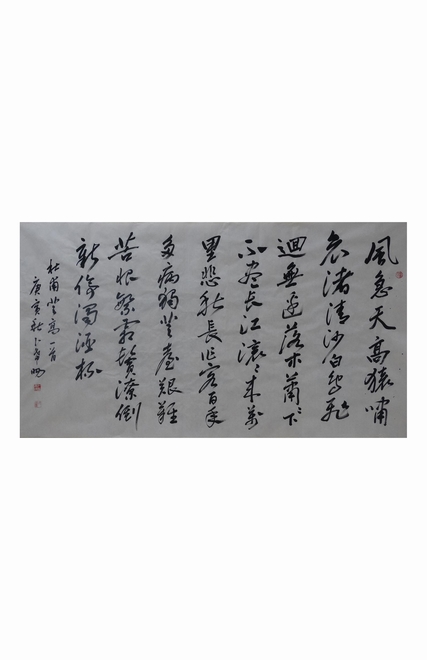 風急天高猿嘯
哀渚清沙白鳥飛
迴無邊落木蕭〻下
不盡長江滾〻來萬
里悲秋長作客百年
多病獨登臺艱難
苦恨繁霜鬢潦倒
新停濁酒杯
杜甫登高一首
庚寅秋